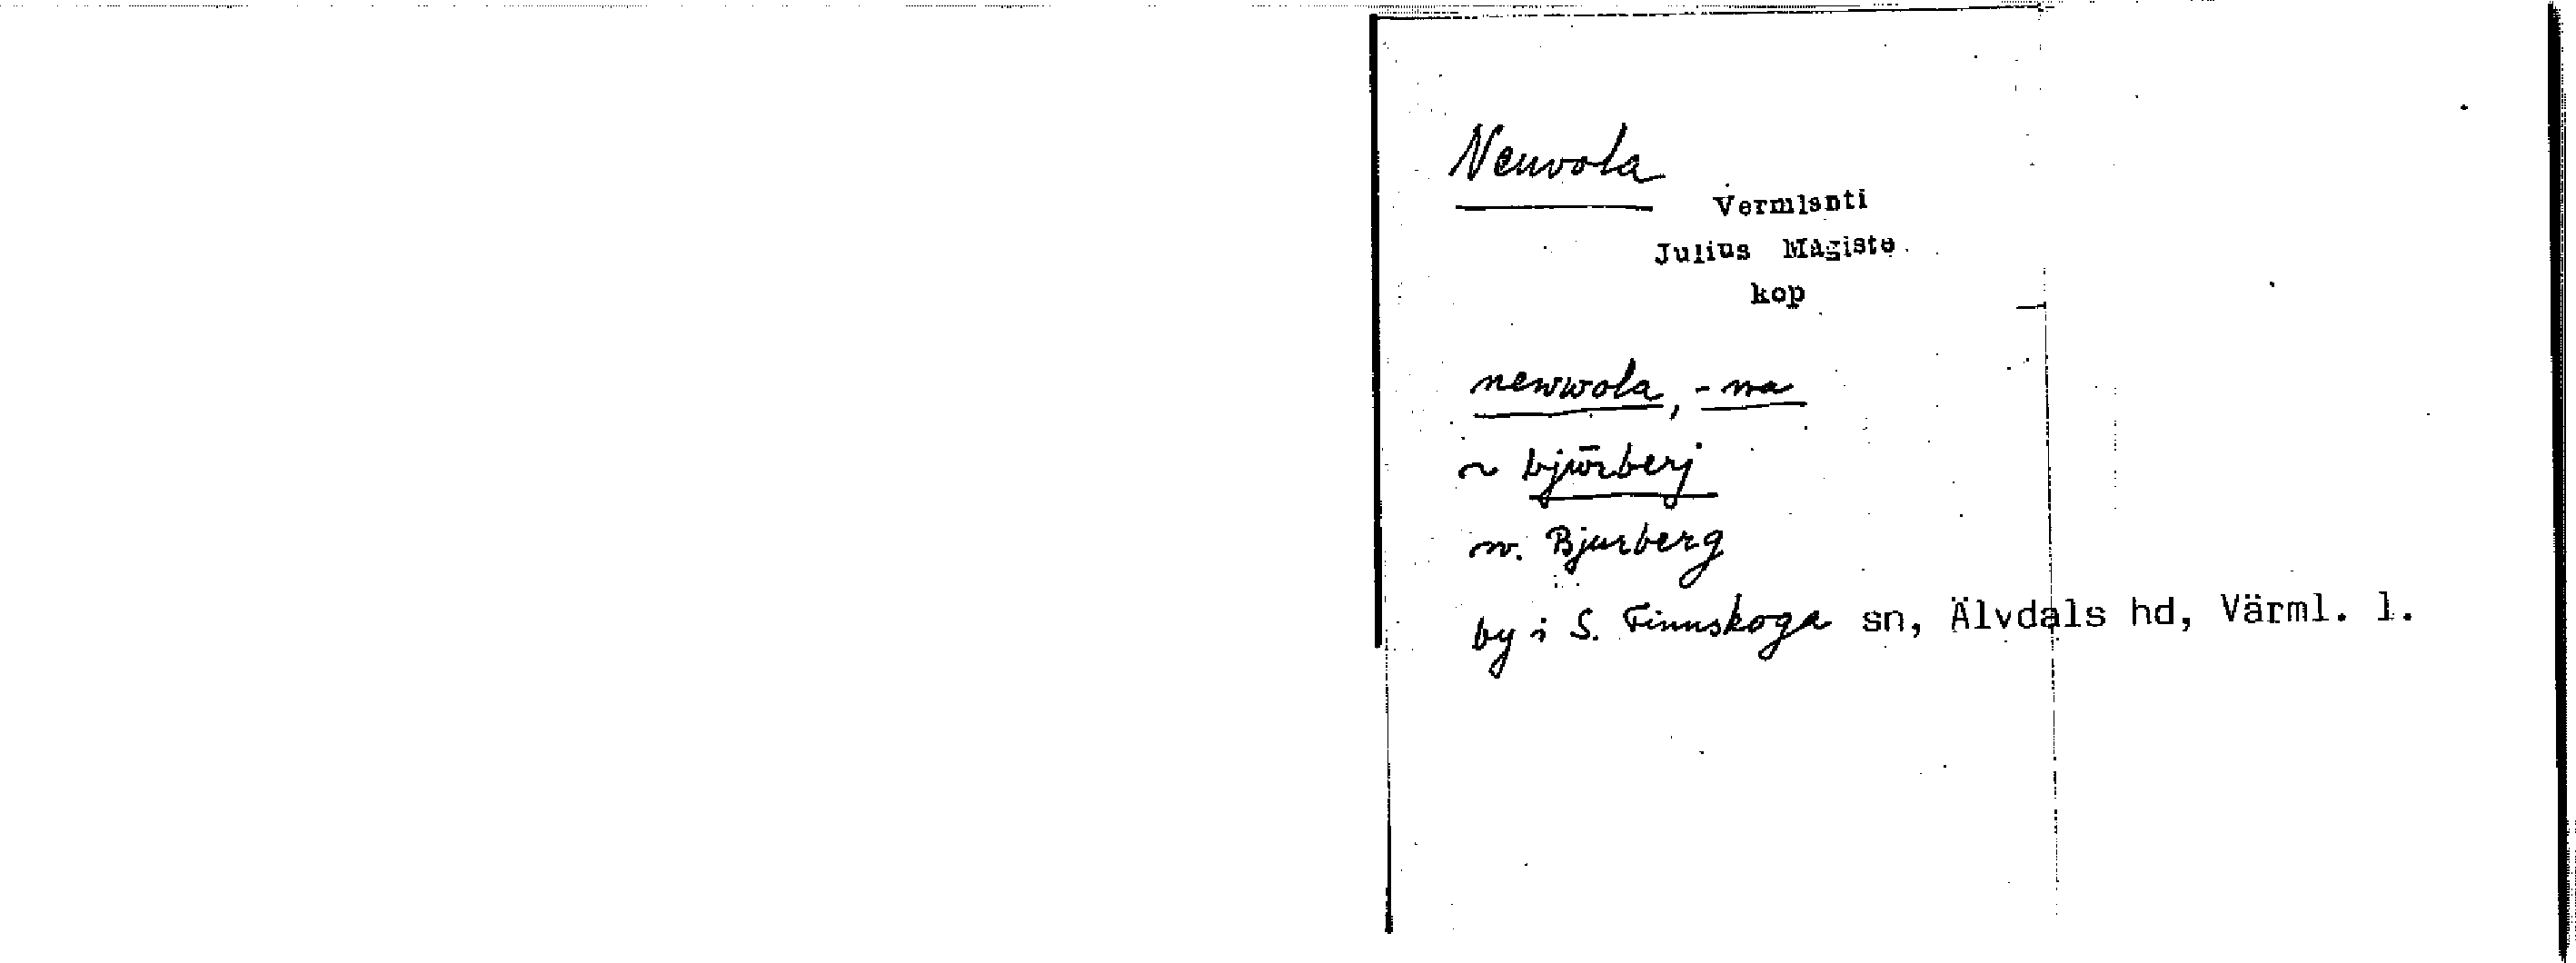 Neuvola
Vermlanti
Julius Mägiste
kop
newwola, -na
~ bjūrberj
r. Bjurberg
by i S. Finnskoga sn, Älvdals hd, Värml. l.